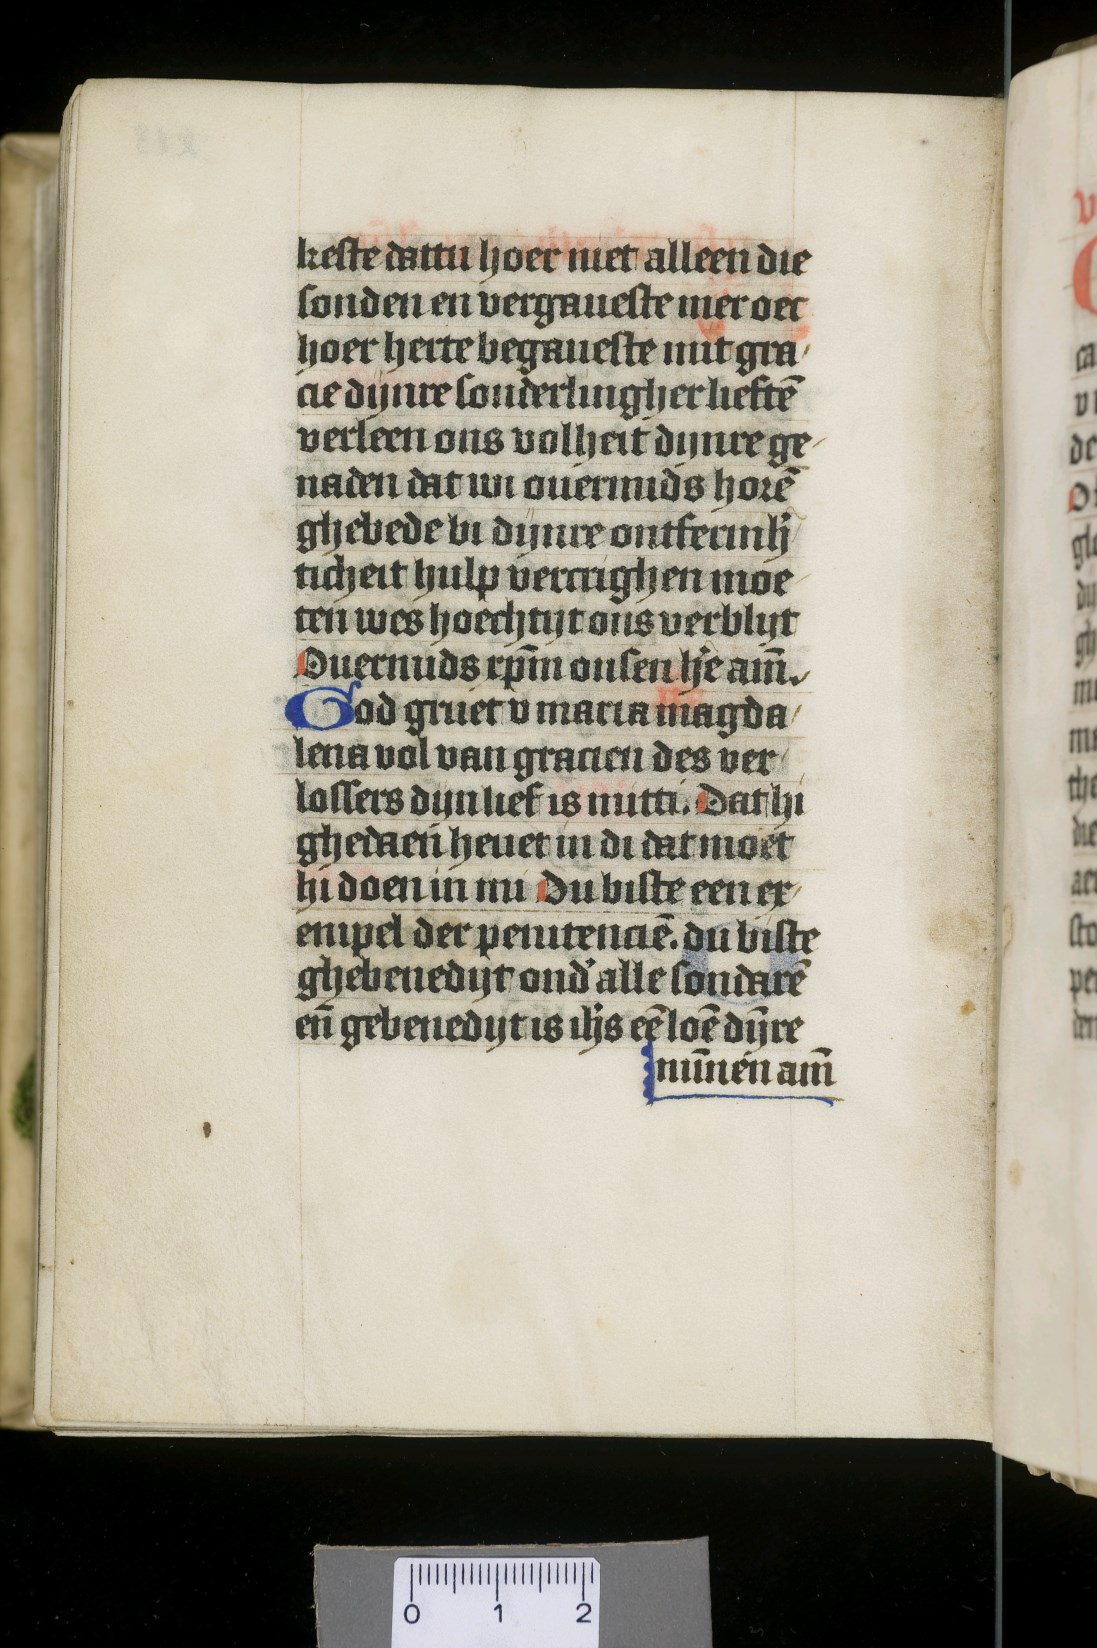 keste dattu hoer niet alleen die
sonden en vergaueste mer oec
hoer herte begaueste mit gra
cie dijnre sonderlingher lieftē
verleen ons volheit dijnre ge
naden dat wi ouermids horē
ghebede bi dijnre ontfermh̄
ticheit hulp vercrighen moe
ten wes hoechtijt ons verblijt
Ouermids xp̄m onsen h̄e am̄.
God gruet v maria magda
lena vol van gracien des ver
lossers dijn lief is mitti. Dat hi
ghedaen heuet in di dat moet
hi doen in mi Du biste een ex
empel der penitenciē. du biste
ghebenedijt ond' alle sondarē
en̄ gebenedijt is ih̄s eē loē dȳre
mīnen am̄
0 1 2